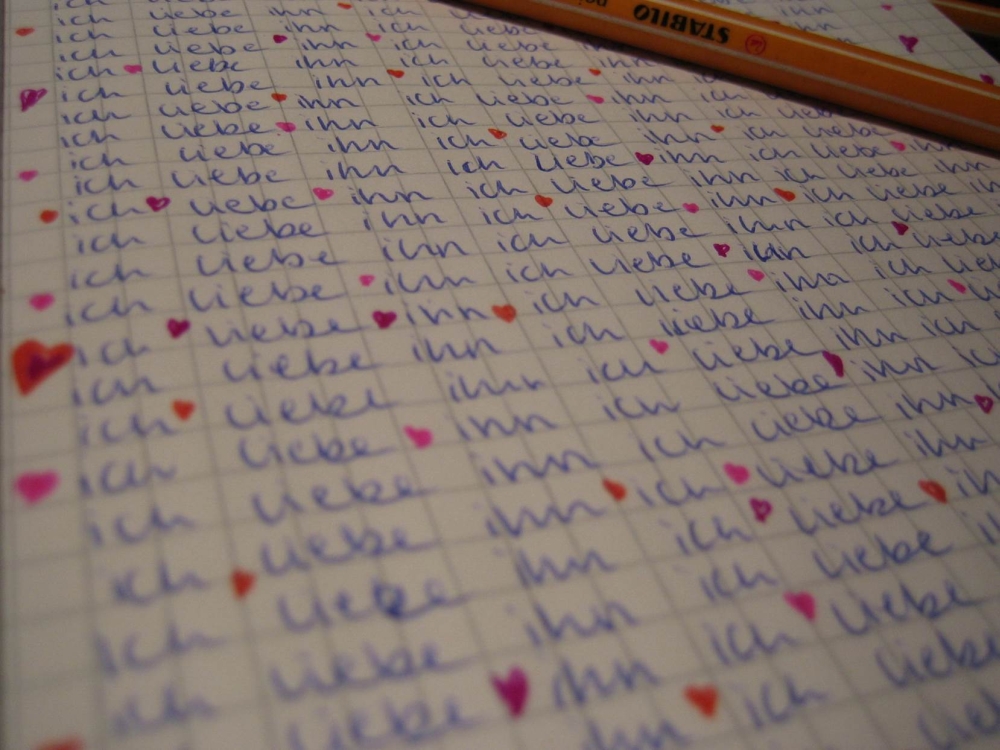 STABILO
ich liebe ihn ich
ich liebe ihn ich liebe
ich liebe ihn ich liebe
ich liebe ihn ich liebe ihn
ich liebe ihn ich liebe ihn
ich liebe ihn ich liebe ihn ich
ich liebe ihn ich liebe ihn ich liebe
ich liebe ihn ich liebe ihn ich liebe
ich liebe ihn ich liebe ihn ich liebe
ich liebe ihn ich liebe ihn ich liebe
ich liebe ihn ich liebe ihn ich liebe
ich liebe ihn ich liebe ihn ich liebe
ich liebe ihn ich liebe ihn ich liebe
ich liebe ihn ich liebe ihn ich
ich liebe ihn ich liebe ihn ich
ich liebe ihn ich liebe ihn
ich liebe ihn ich liebe ihn
ich liebe ihn ich liebe
ich liebe ihn ich liebe
ich liebe ihn ich liebe
ich liebe ihn ich liebe
liebe ihn ich